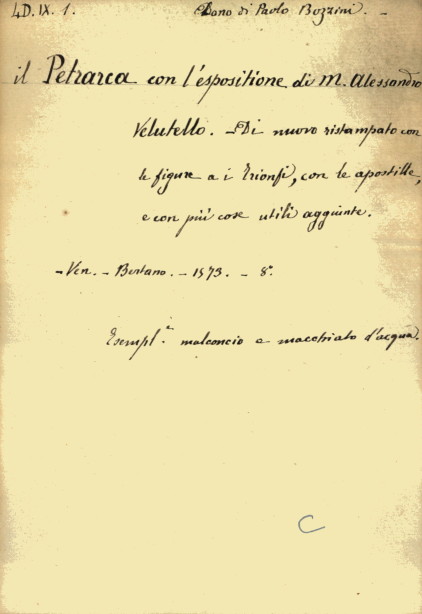 4D. IX. 1. Dono di Paolo Bozzini. -
il Petrarca con l'espositione di M. Alessandro
Velutello. - Di nuovo ristampato con
le figure a i Trionfi, con le apostille,
e con più cose utili aggiunte.
- Ven. - Bertano. - 1573. - 8°.
Esempl.e malconcio e macchiato d'acqua.
C